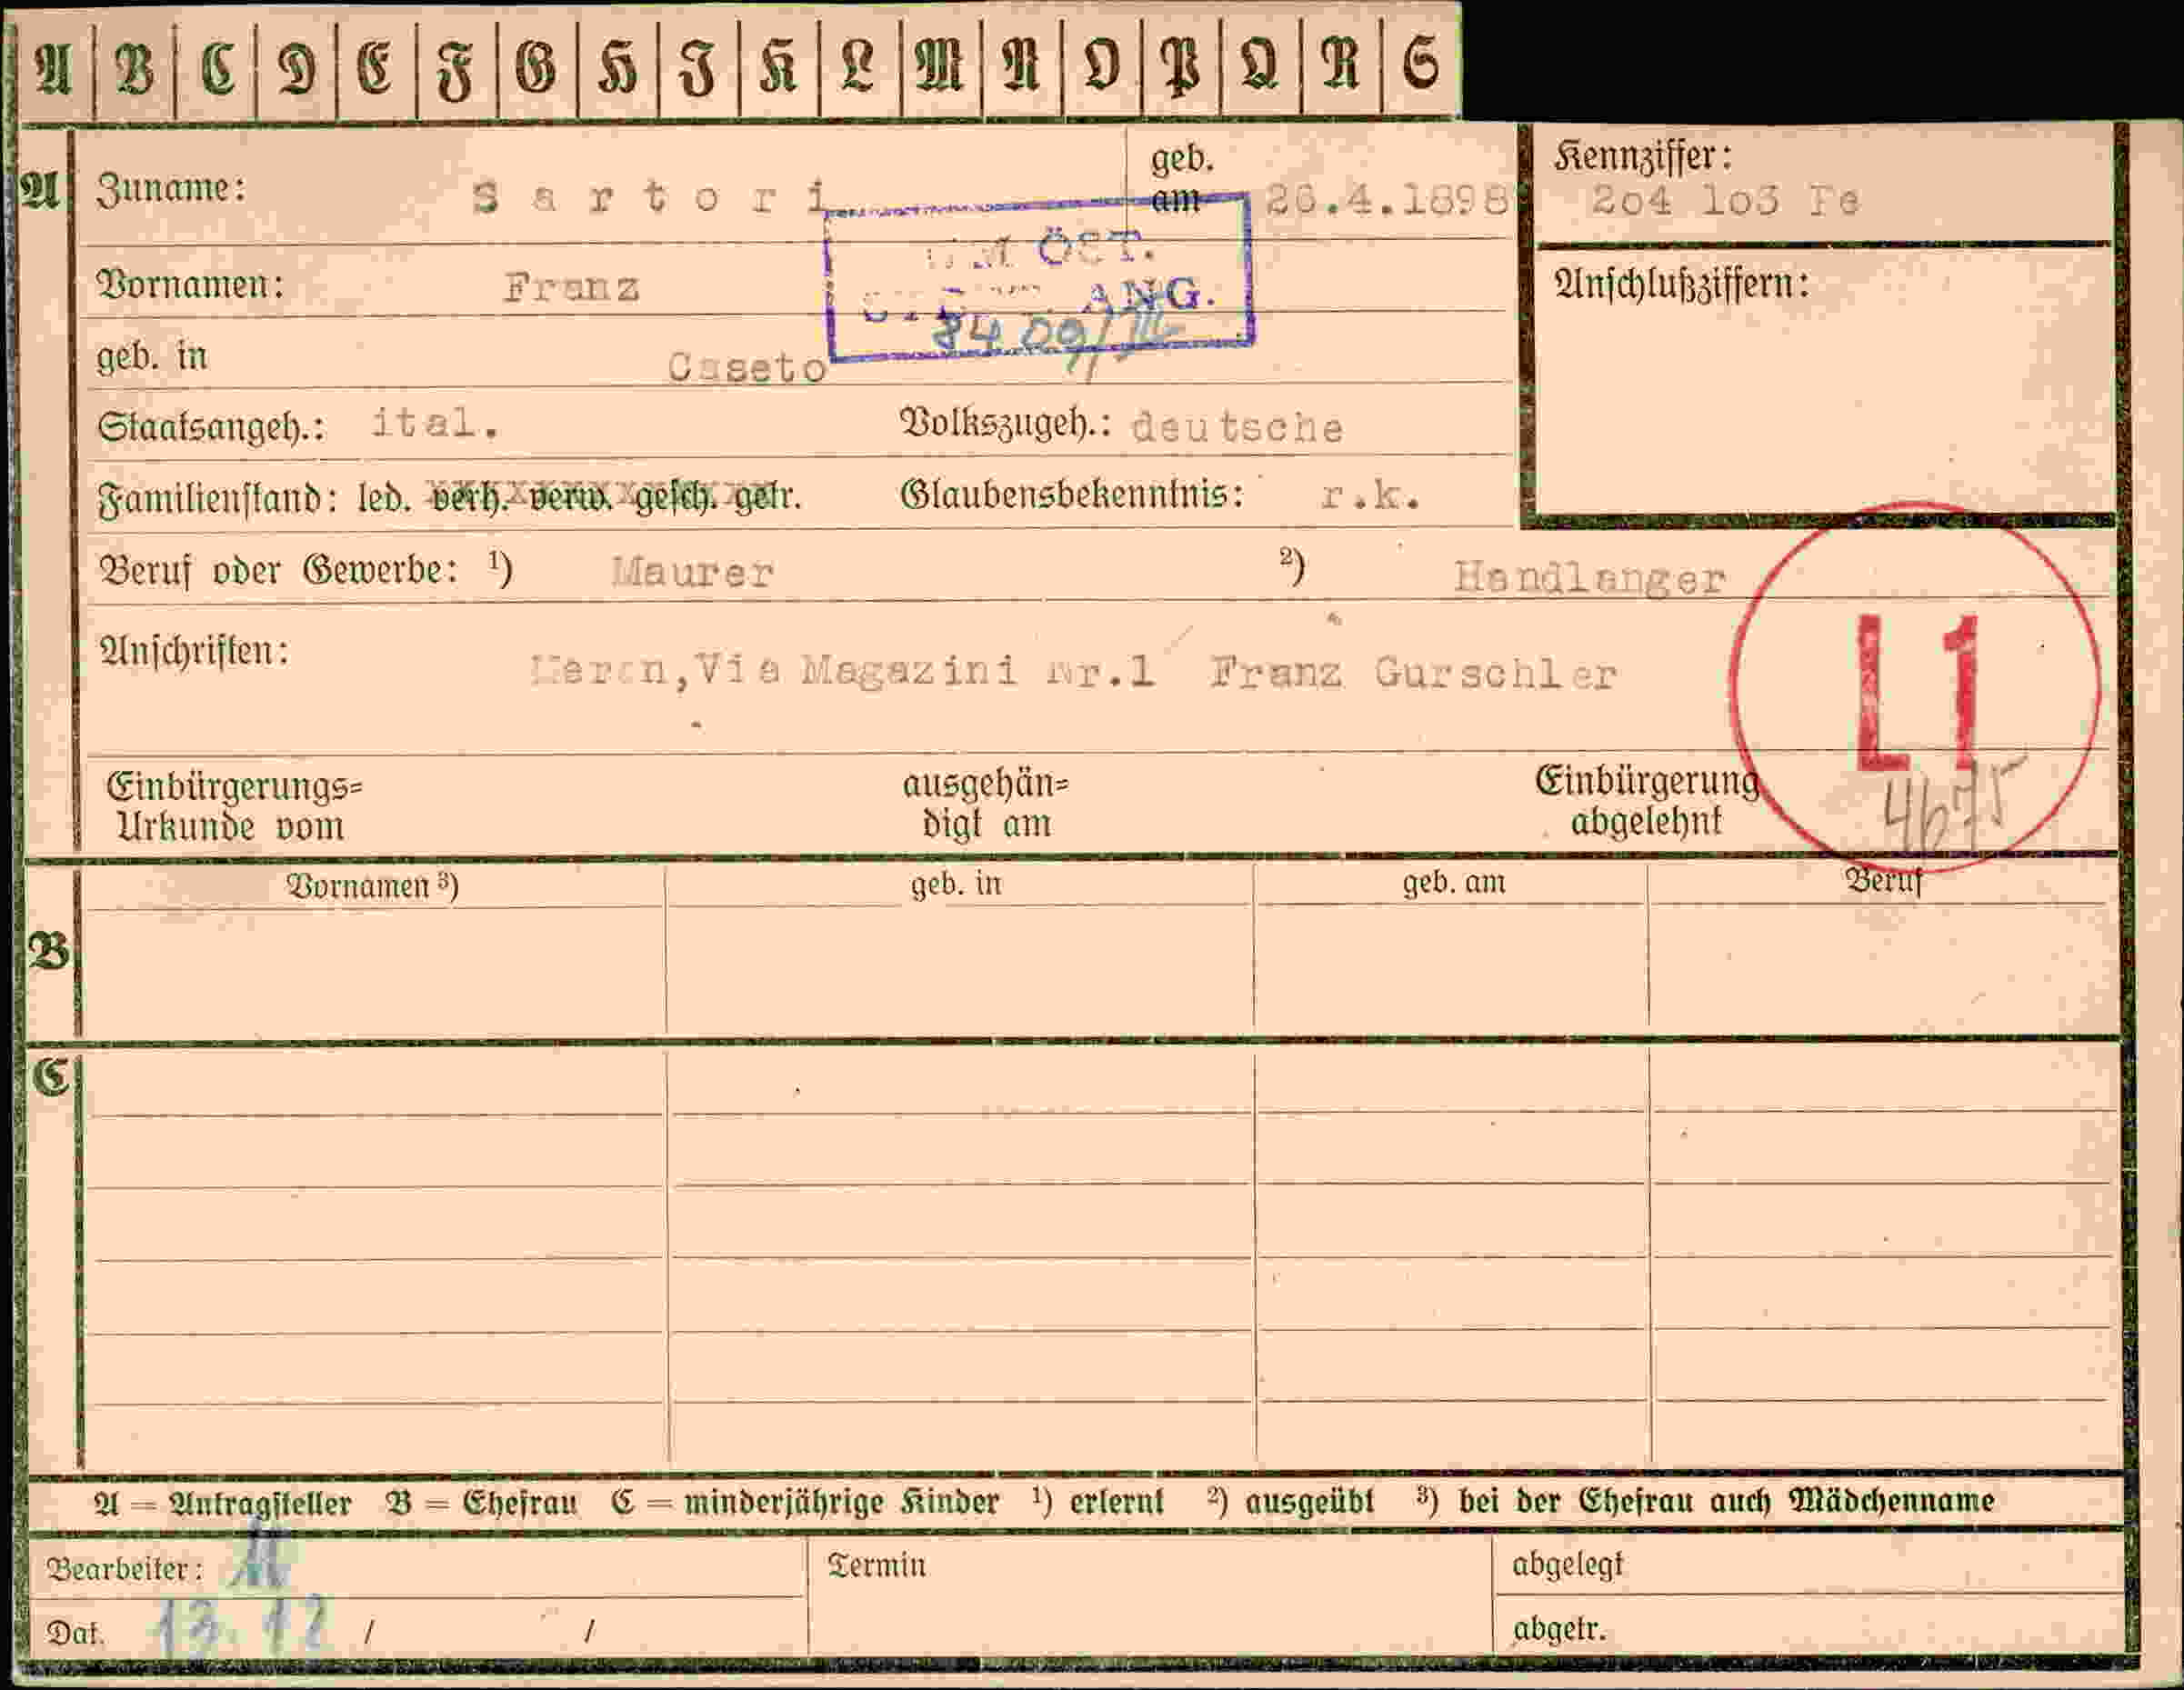 A B C D E F G H J K L M N O P Q R S
A Zuname: Sartori geb. am 26.4.1898 Kennziffer: 204 lo3 Fe
ÖST.
ANG.
8409/
Vornamen: Franz Anschlußziffern:
geb. in Caseto
Staatsangeh.: ital. Volkszugeh.: deutsche
Familienstand: led. verh. verw. gesch. getr. Glaubensbekenntnis: r.k.
Beruf oder Gewerbe: ¹) Maurer ²) Handlanger
Anschriften: Meran, Via Magazini Nr.1 Franz Gurschler
L1
4675
Einbürgerungs= ausgehän= Einbürgerung
Urkunde vom digt am abgelehnt
Vornamen ³) geb. in geb. am Beruf
B
C
A = Antragsteller B = Ehefrau C = minderjährige Kinder ¹) erlernt ²) ausgeübt ³) bei der Ehefrau auch Mädchenname
Bearbeiter: Termin abgelegt
Dat. 13.12 / / abgetr.